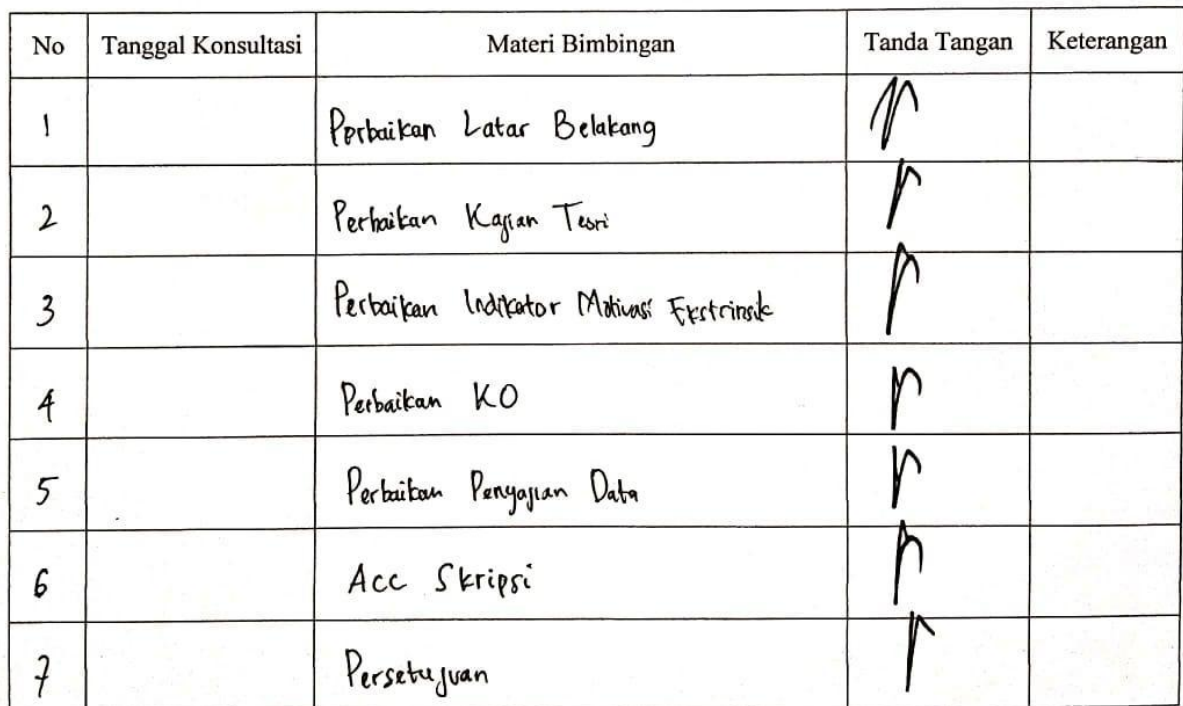 No Tanggal Konsultasi Materi Bimbingan Tanda Tangan Keterangan
1 Perbaikan Latar Belakang
2 Perbaikan Kajian Teori
3 Perbaikan Indikator Motivasi Ekstrinsik
4 Perbaikan KO
5 Perbaikan Penyajian Data
6 Acc Skripsi
7 Persetujuan